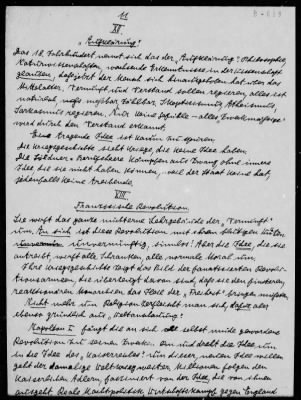 11
XI.
"Aufklärung"
Das 18. Jahrhundert nennt sich das der "Aufklärung". Philosophie,
Naturwissenschaften, wachsende Erkenntnisse in der Wissenschaft
glauben, daß jetzt der Mensch sich hinausgehoben hat über das
Mittelalter. Vernunft und Verstand sollen regieren, alles ist
natürlich, Skeptizismus, Atheismus,
Sarkasmus regieren. Nur keine Gefühle - alles
wird durch den Verstand erkannt.
Eine tragende Idee ist kaum zu spüren.
Die Kriegsgeschichte sieht Kriege, die keine Idee haben.
Die Söldner-Berufsheere kämpfen aus Zwang ohne innere
Idee die sie nicht haben können, weil der Staat keine hat,
jedenfalls keine treibende.
VIII.
Französische Revolution
Sie wirft das ganze nüchterne Lehrgebäude der "Vernunft"
um. An sich ist diese Revolution mit ihren blutigen
unvernünftig, sinnlos! Aber die Idee, die sie
antreibt, wirft alle Schranken, alle normale Moral um.
Ihre Kriegsgeschichte zeigt das Bild der fanatisierten Revolu-
tionsarmeen, die überzeugt davon sind, daß sie den finsteren,
reaktionären Monarchien das Heil der "Freiheit" bringen müssen.
Nicht mehr um Religion zerfleischt man sich, dafür aber
ebenso gründlich aus "Weltanschauung"!
Napoleon I. fängt die an sich selbst müde gewordene
Revolution zu seinen Zwecken ein und dreht die Idee um
in die Idee des "Kaiserreiches". Um dieser neuen Idee willen
geht der damalige Weltkrieg weiter. Millionen folgen den
Kaiserlichen Adlern, fasziniert von der Idee, die von ihnen
ausgeht. Reale Machtpolitik, Wirtschaftskampf gegen England